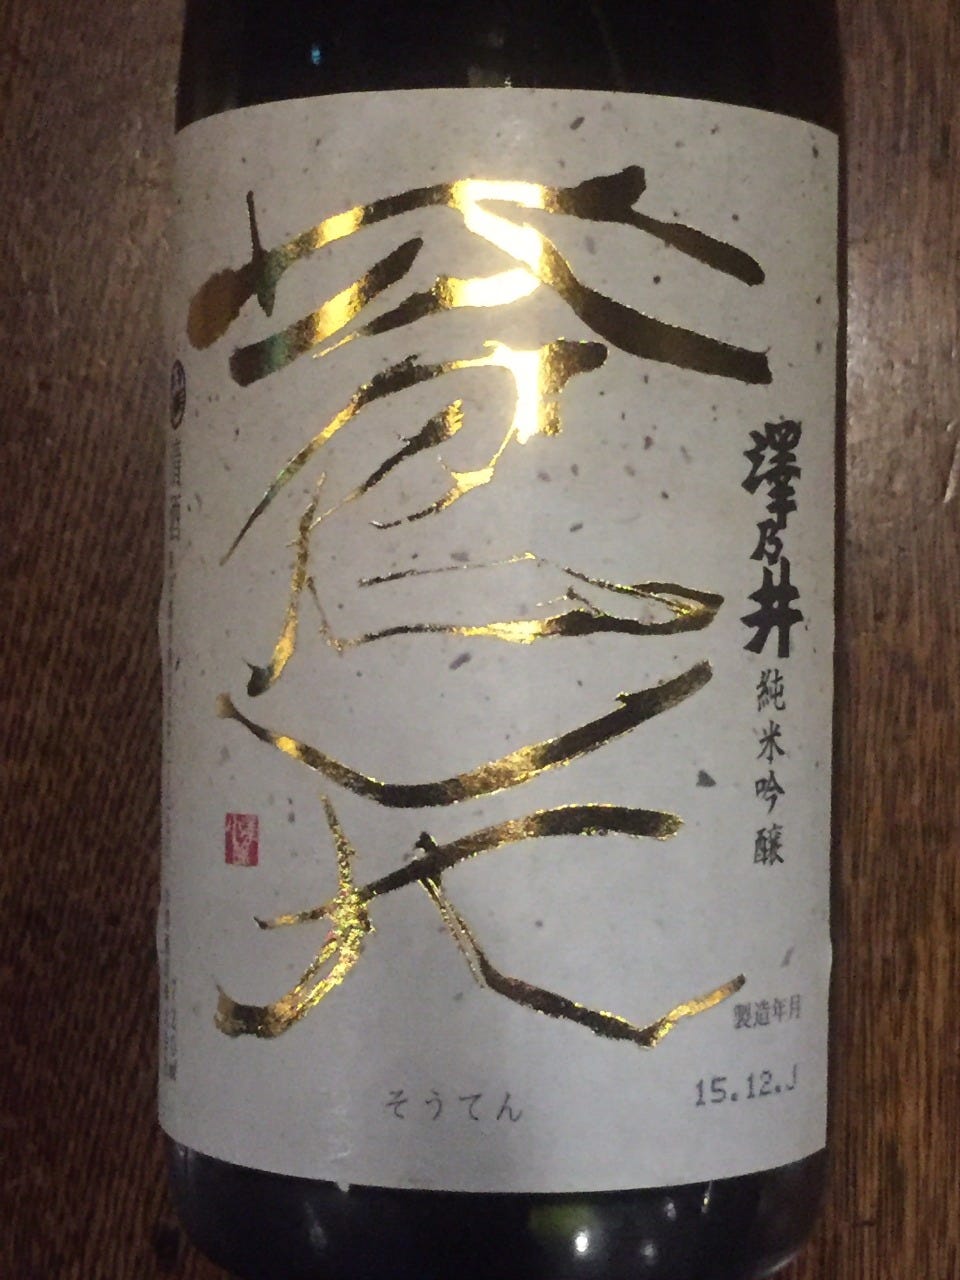 澤乃井
純米吟醸
蒼天
そうてん
製造年月
15.12.J
清酒